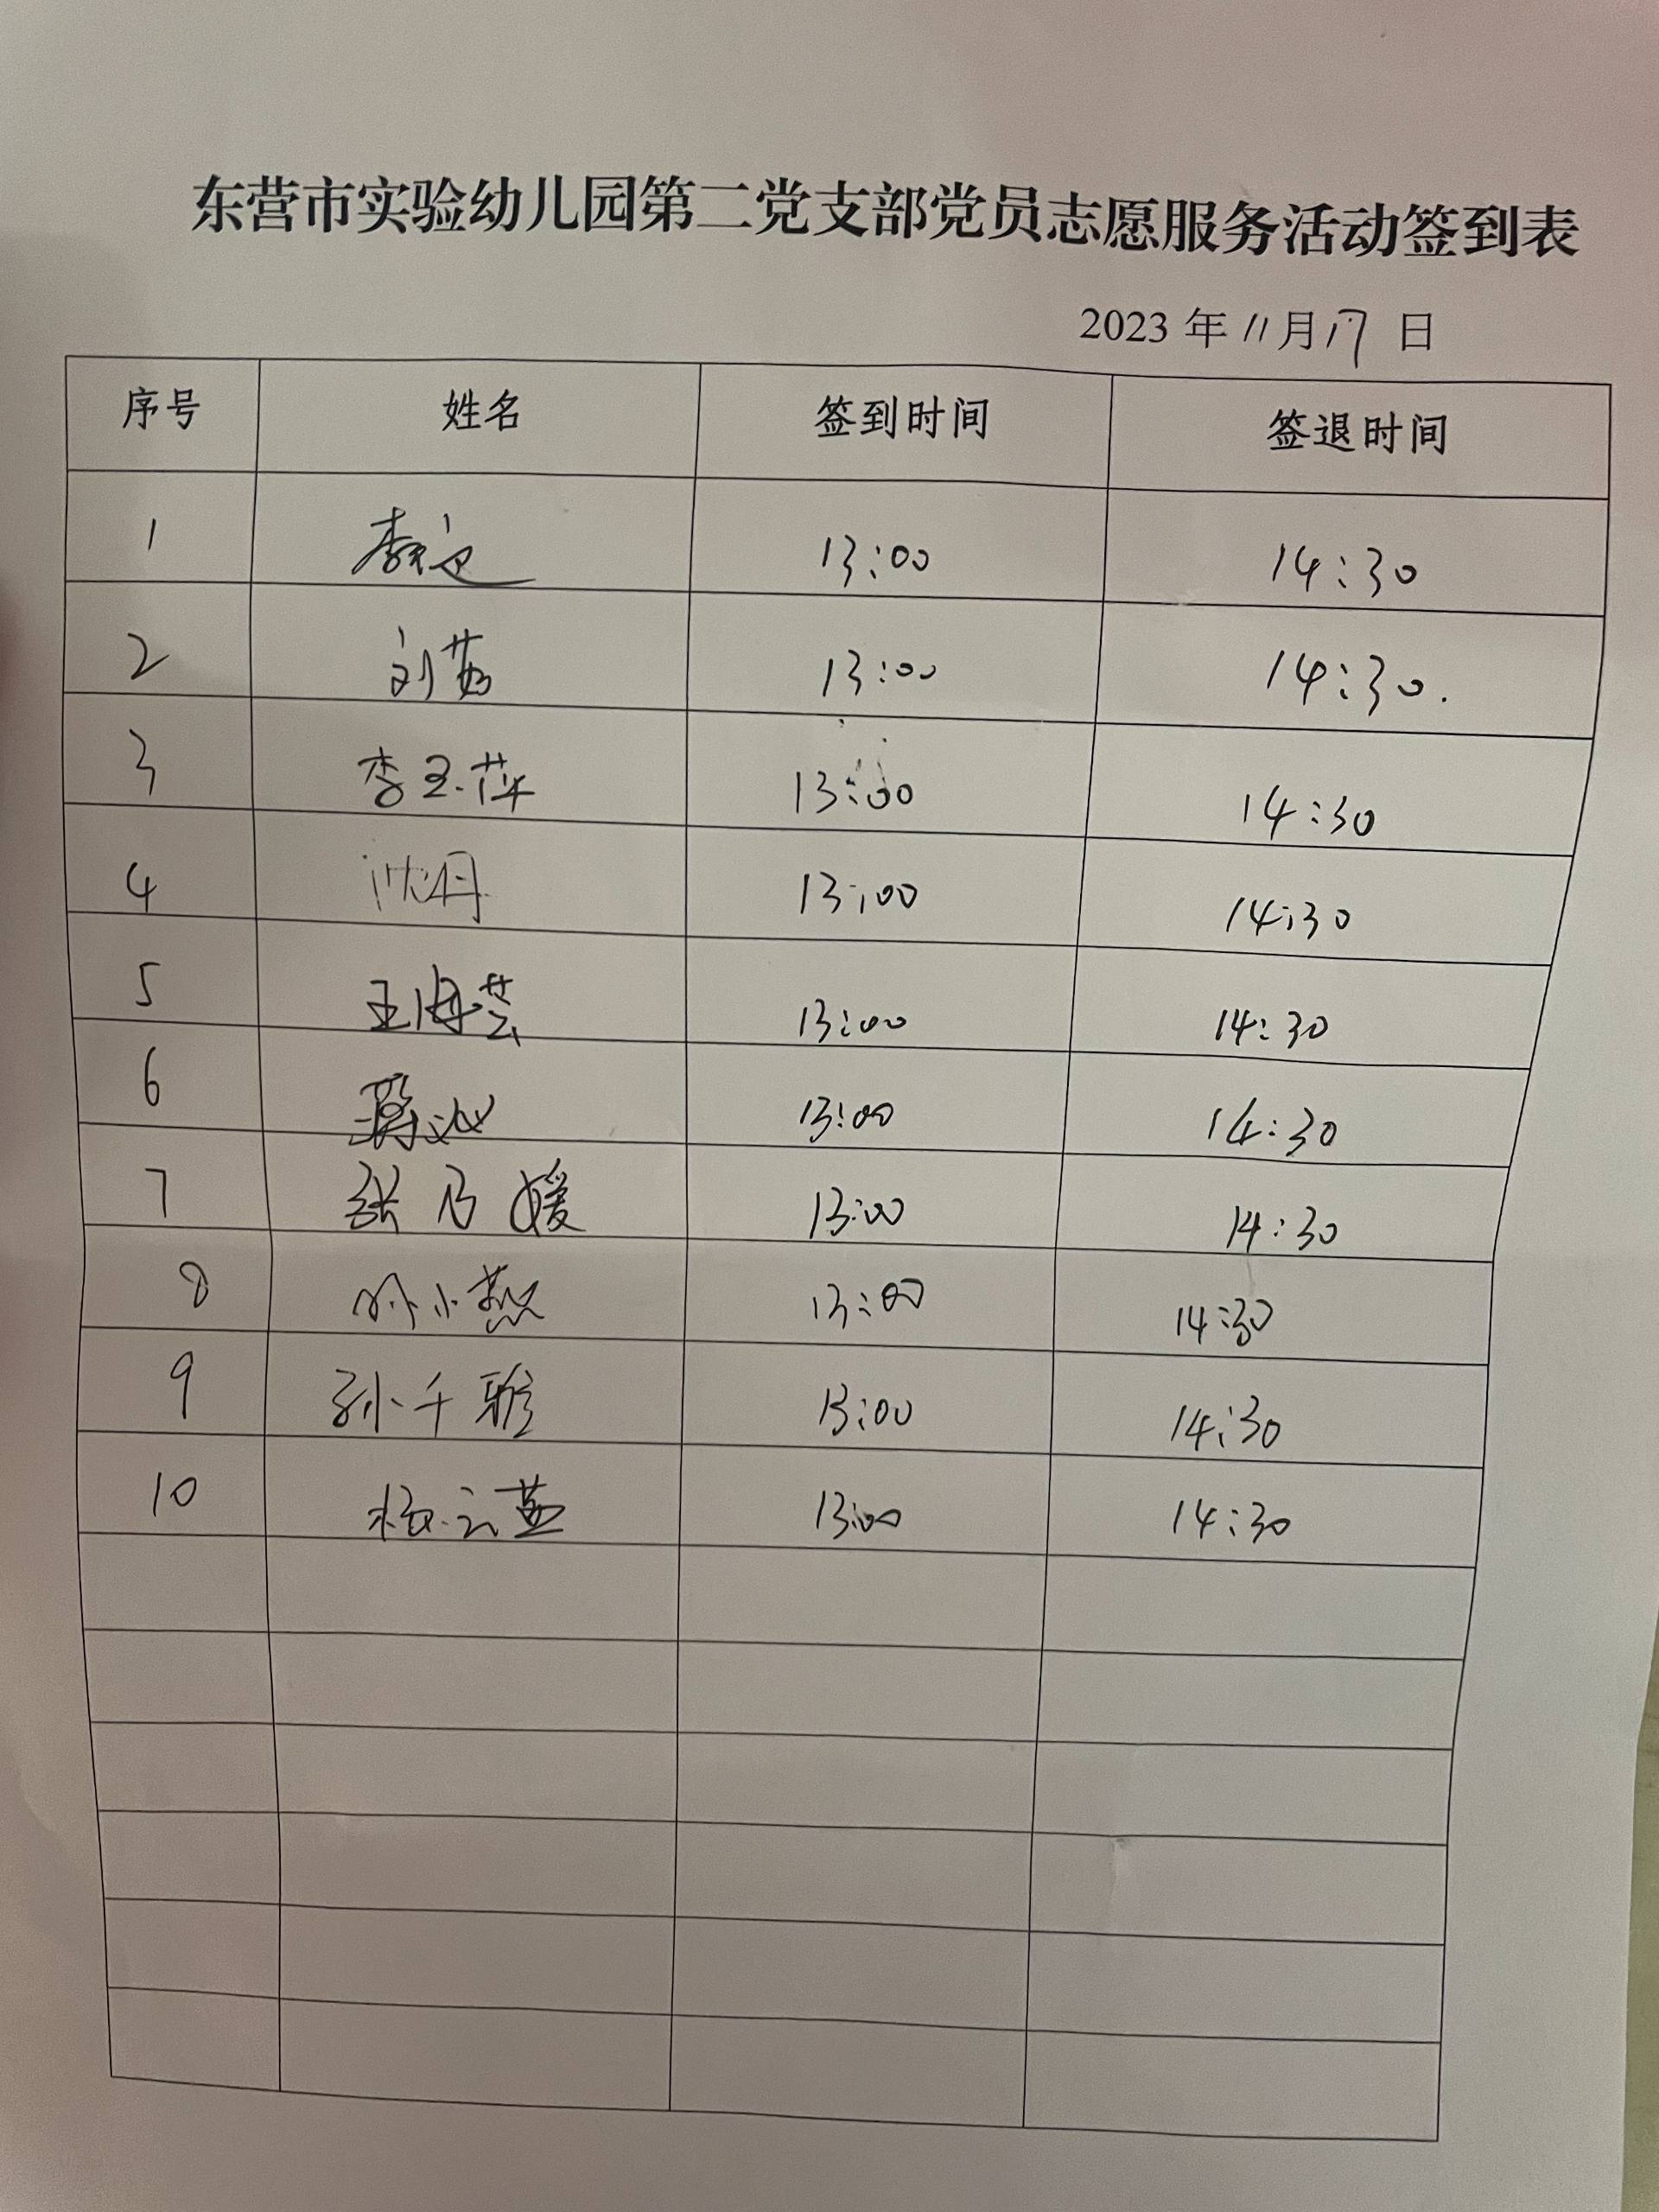 东营市实验幼儿园第二党支部党员志愿服务活动签到表
2023 年 11 月 17 日
序号 姓名 签到时间 签退时间
1 13:00 14:30
2 刘茜 13:00 14:30.
3 李玉萍 13:00 14:30
4 沈丹 13:00 14:30
5 王海芸 13:00 14:30
6 13:00 14:30
7 张乃媛 13:00 14:30
8 孙小燕 13:00 14:30
9 孙千雅 13:00 14:30
10 杨云燕 13:00 14:30